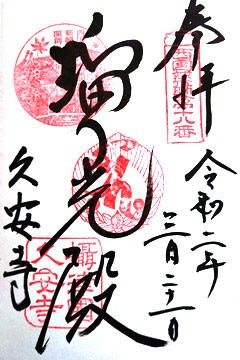 奉拝
西国薬師第十八番
令和二年
三月二十一日
瑠り光殿
久安寺
摂津国
久安寺